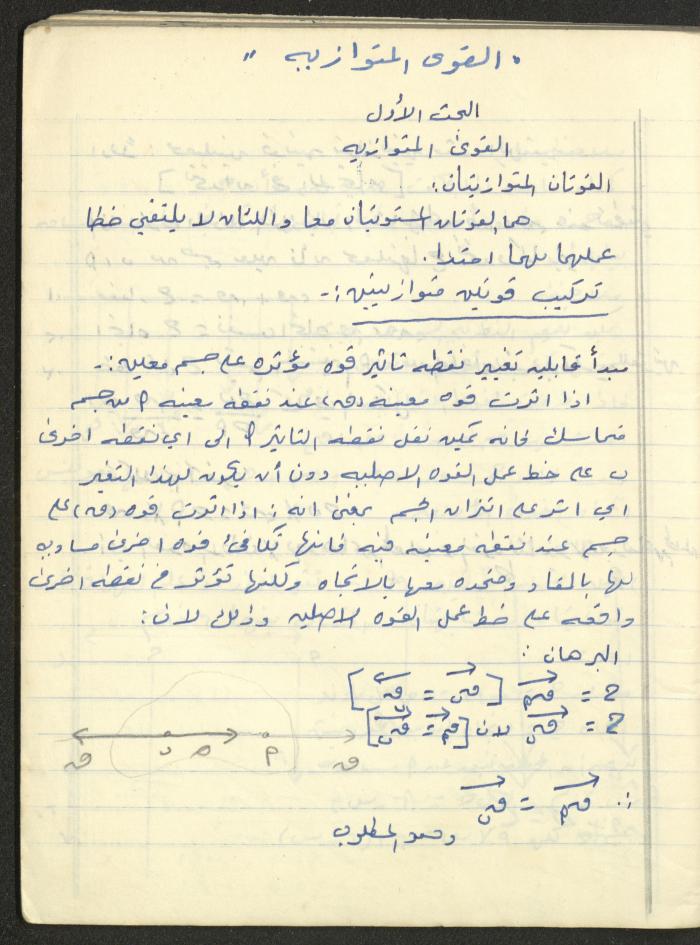 " القوى المتوازيه "
البحث الأول
القوى المتوازيه
القوتان المتوازيتان :
هما القوتان المستويتان معا واللتان لا يلتقي خطا
عملهما مهما امتدا .
تركيب قوتين متوازيتين :-
مبدأ قابلية تغيير نقطه تاثير قوه مؤثره على جسم معين :-
اذا اثرت قوه معينه (ق) عند نقطه معينه م من جسم
متماسك فانه يمكن نقل نقطه التاثير م الى اي نقطه اخرى
ن على خط عمل القوه الاصليه دون أن يكون لهذا التغير
اي اثر على اتزان الجسم بمعنى انه : اذا اثرت قوه (ق) على
جسم عند نقطه معينه فيه فانها تكافئ قوه اخرى مساويه
لها بالمقدار ومتحده معها بالاتجاه ولكنها تؤثر في نقطه اخرى
واقعه على خط عمل القوه الاصليه وذلك لان :
البرهان :
ح = قم [ قن = ق ]
ح = قن لان [ قم = ق ]
ق ن ح م ق
∴ قم = قن
وهو المطلوب